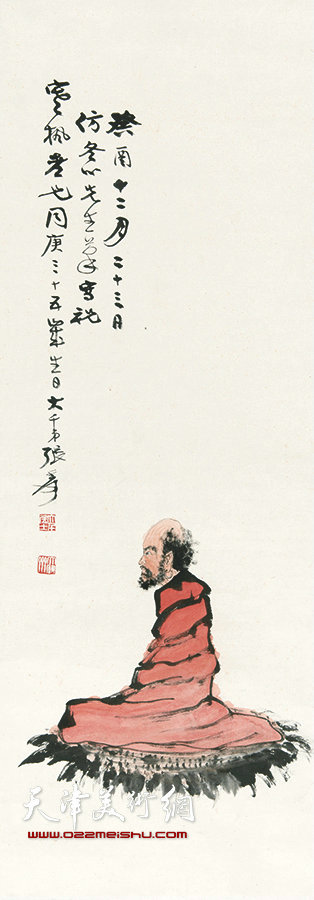 癸酉十二月二十三日
仿冬心先生筆寫祝
楓老兄同庚三十五歲生日大千弟張爰
天津美術網
www.022meishu.com